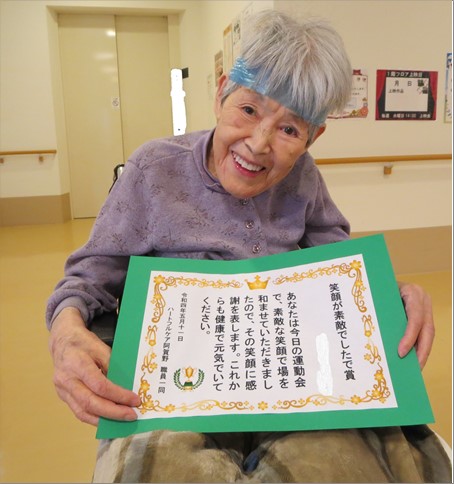 笑顔が素敵でしたで賞
あなたは今日の運動会
で、素敵な笑顔で場を
和ませていただきまし
たので、その笑顔に感
謝を表します。これか
らも健康で元気でいて
ください。
令和四年五月十一日
ハートフルケア阿賀野 職員一同
1階フロア上映会
月 日
上映作品